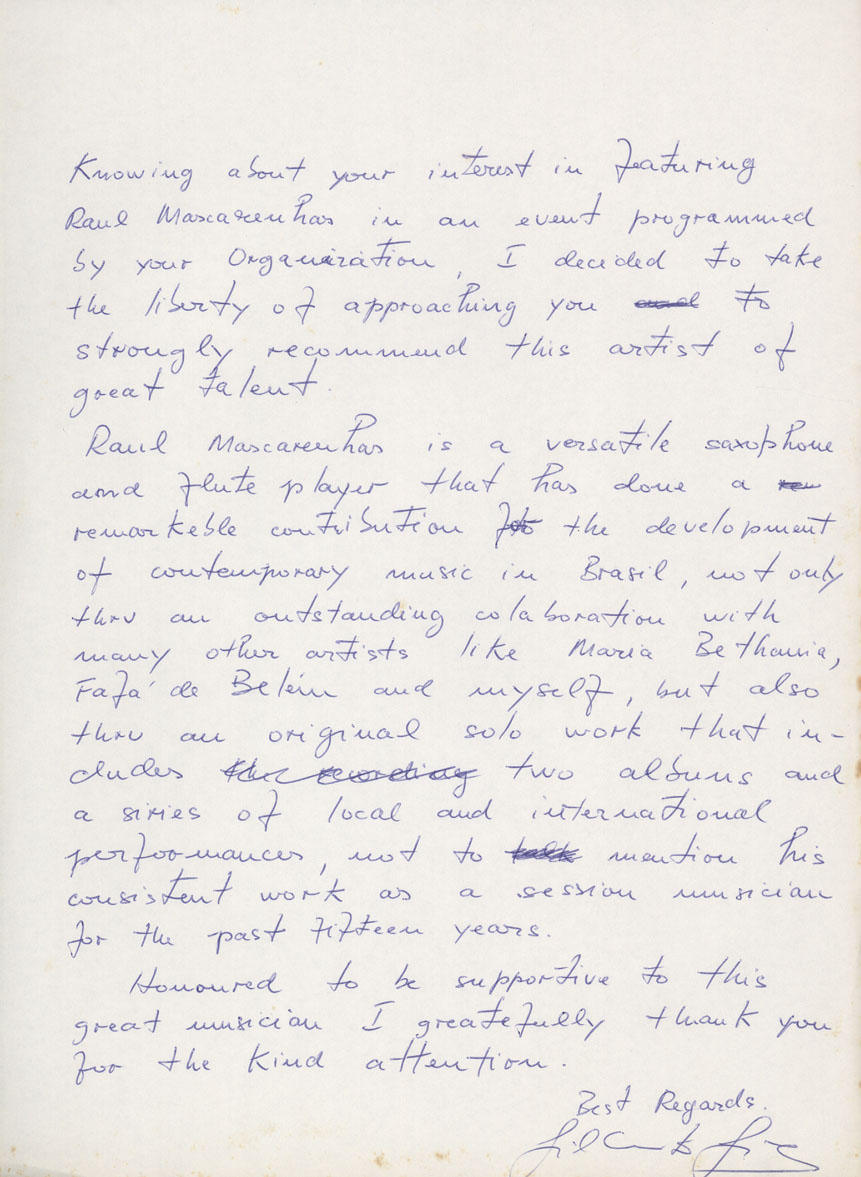 Knowing about your interest in featuring
Raul Mascarenhas in an event programmed
by your Organization, I decided to take
the liberty of approaching you and to
strongly recommend this artist of
great talent.
Raul Mascarenhas is a versatile saxophone
and flute player that has done a
remarkeble contribution to the development
of contemporary music in Brasil, not only
thru an outstanding colaboration with
many other artists like Maria Bethania,
Fafá de Belém and myself, but also
thru an original solo work that in-
cludes the recording two albuns and
a siries of local and international
performances, not to mention his
consistent work as a session musician
for the past fifteen years.
Honoured to be supportive to this
great musician I greatefully thank you
for the kind attention.
Best Regards.
Gilberto Gil